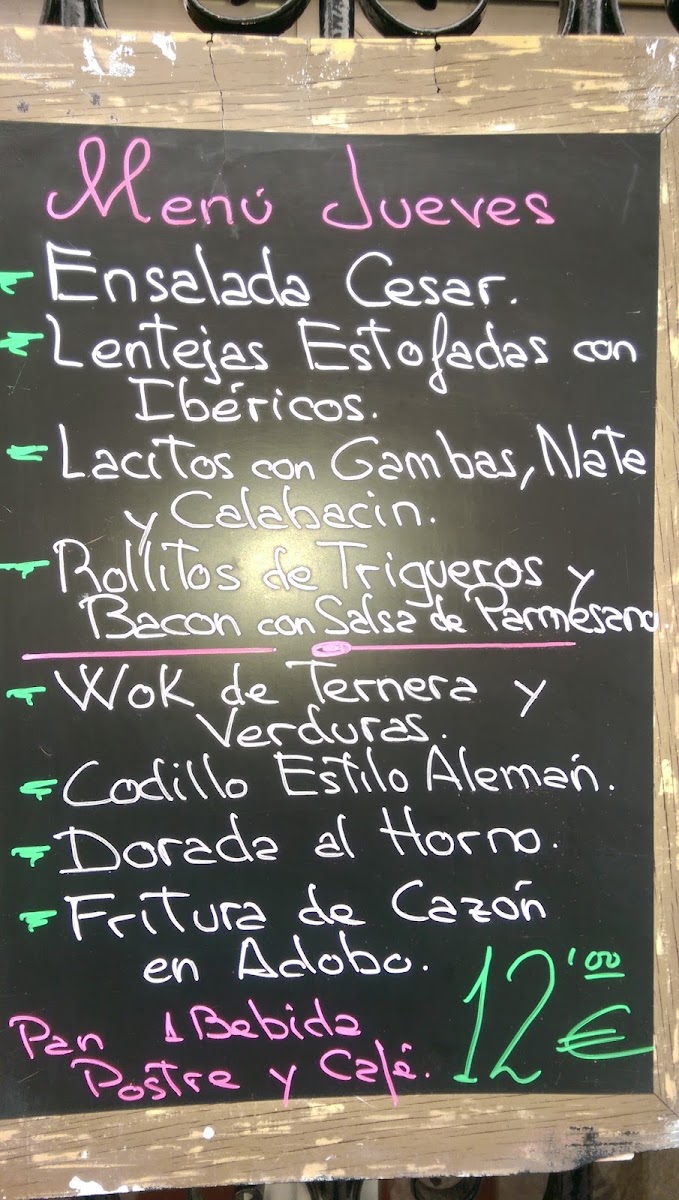 Menú Jueves
Ensalada Cesar.
Lentejas Estofadas con
Ibéricos.
Lacitos con Gambas, Nata
y Calabacin.
Rollitos de Trigueros y
Bacon con Salsa de Parmesano.
Wok de Ternera y
Verduras.
Codillo Estilo Alemán.
Dorada al Horno.
Fritura de Cazón
en Adobo.
12'00 €
Pan 1 Bebida
Postre y Café.